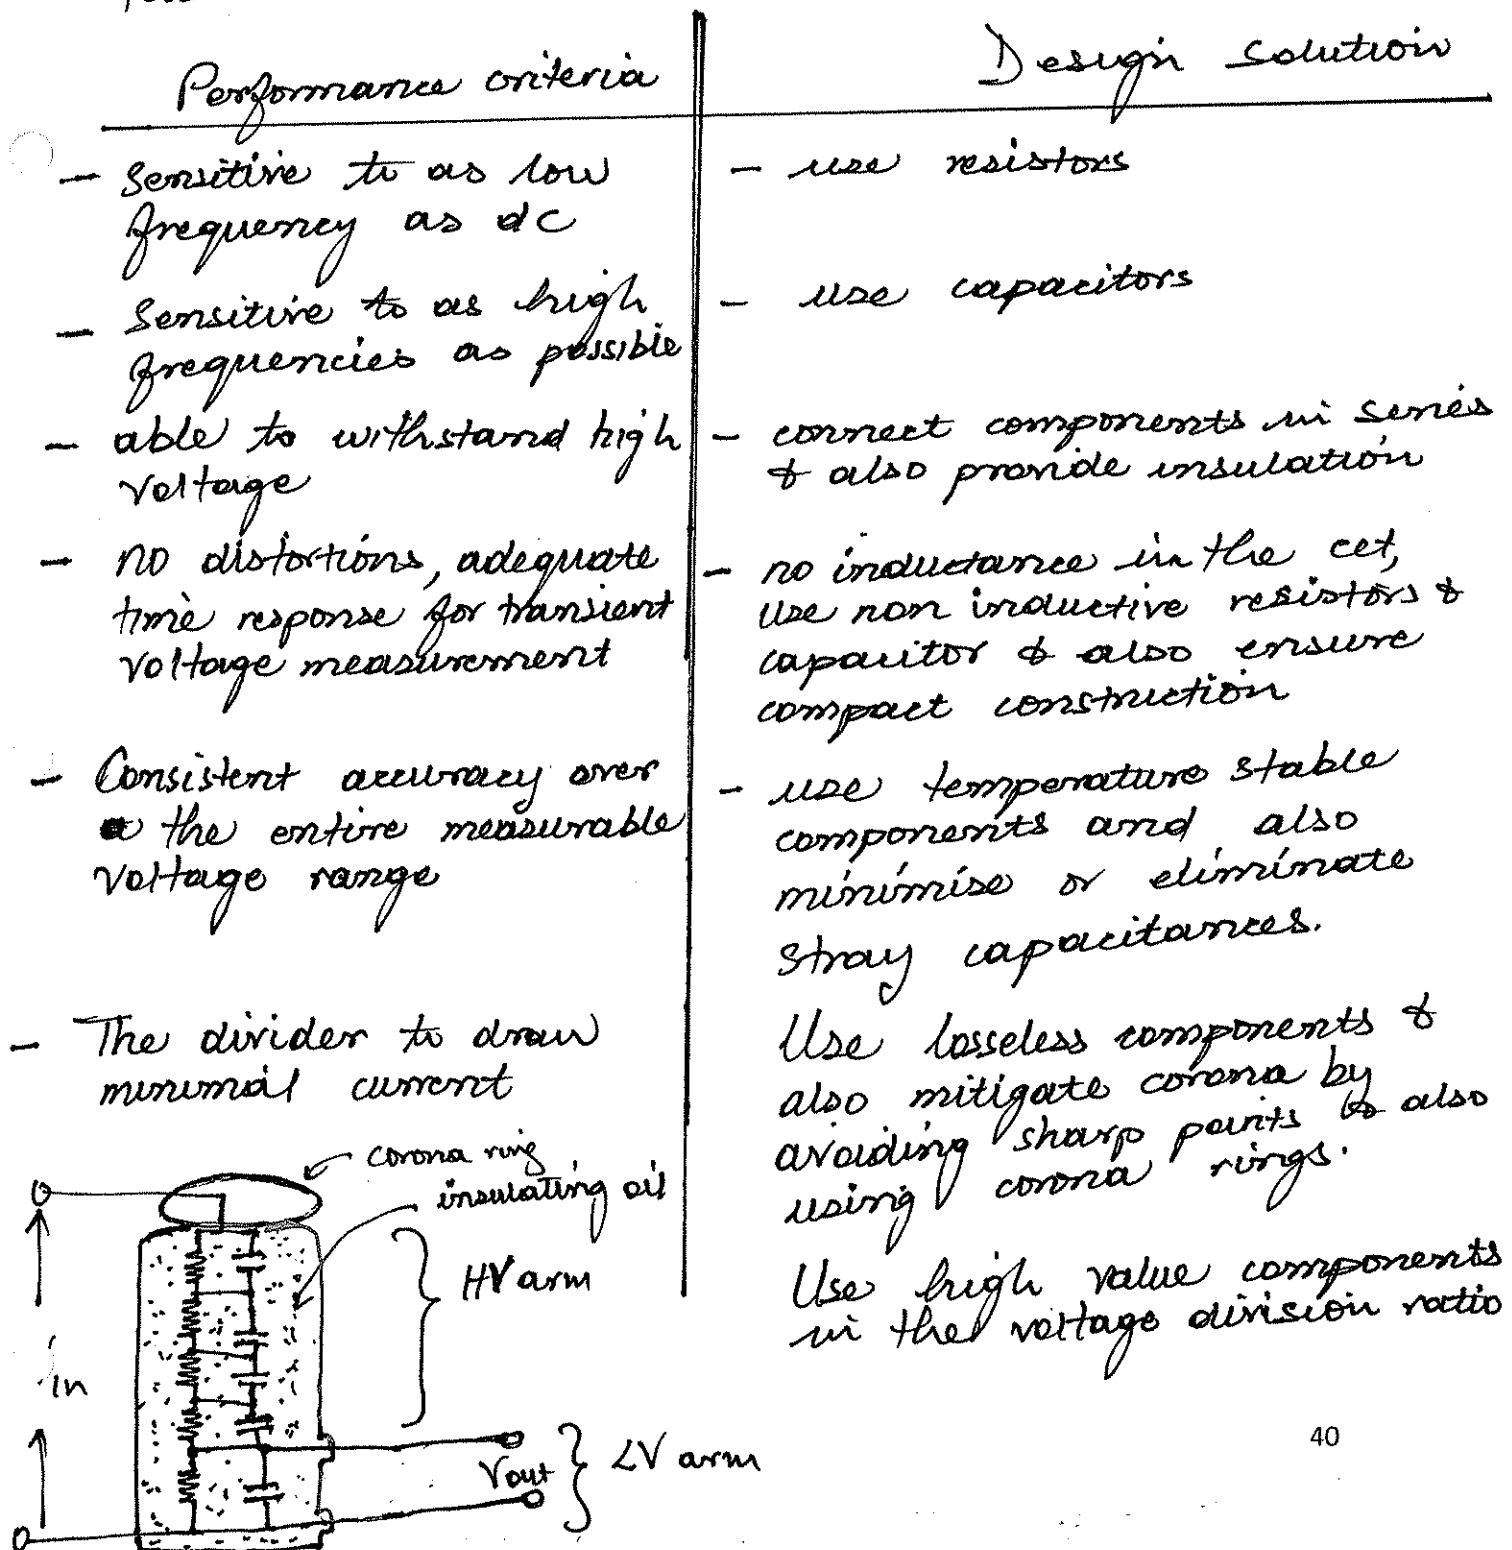 Performance criteria
Design solution
- Sensitive to as low
frequency as dc
- use resistors
- Sensitive to as high
frequencies as possible
- use capacitors
- able to withstand high
voltage
- connect components in series
& also provide insulation
- no distortions, adequate
time response for transient
voltage measurement
- no inductance in the cct,
use non inductive resistors &
capacitor & also ensure
compact construction
- Consistent accuracy over
the entire measurable
voltage range
- use temperature stable
components and also
minimise or eliminate
stray capacitances.
- The divider to draw
minimal current
Use losseless components &
also mitigate corona by
avoiding sharp points & also
using corona rings.
Use high value components
in the voltage division ratio
corona ring
insulating oil
HV arm
in
Vout
LV arm
40